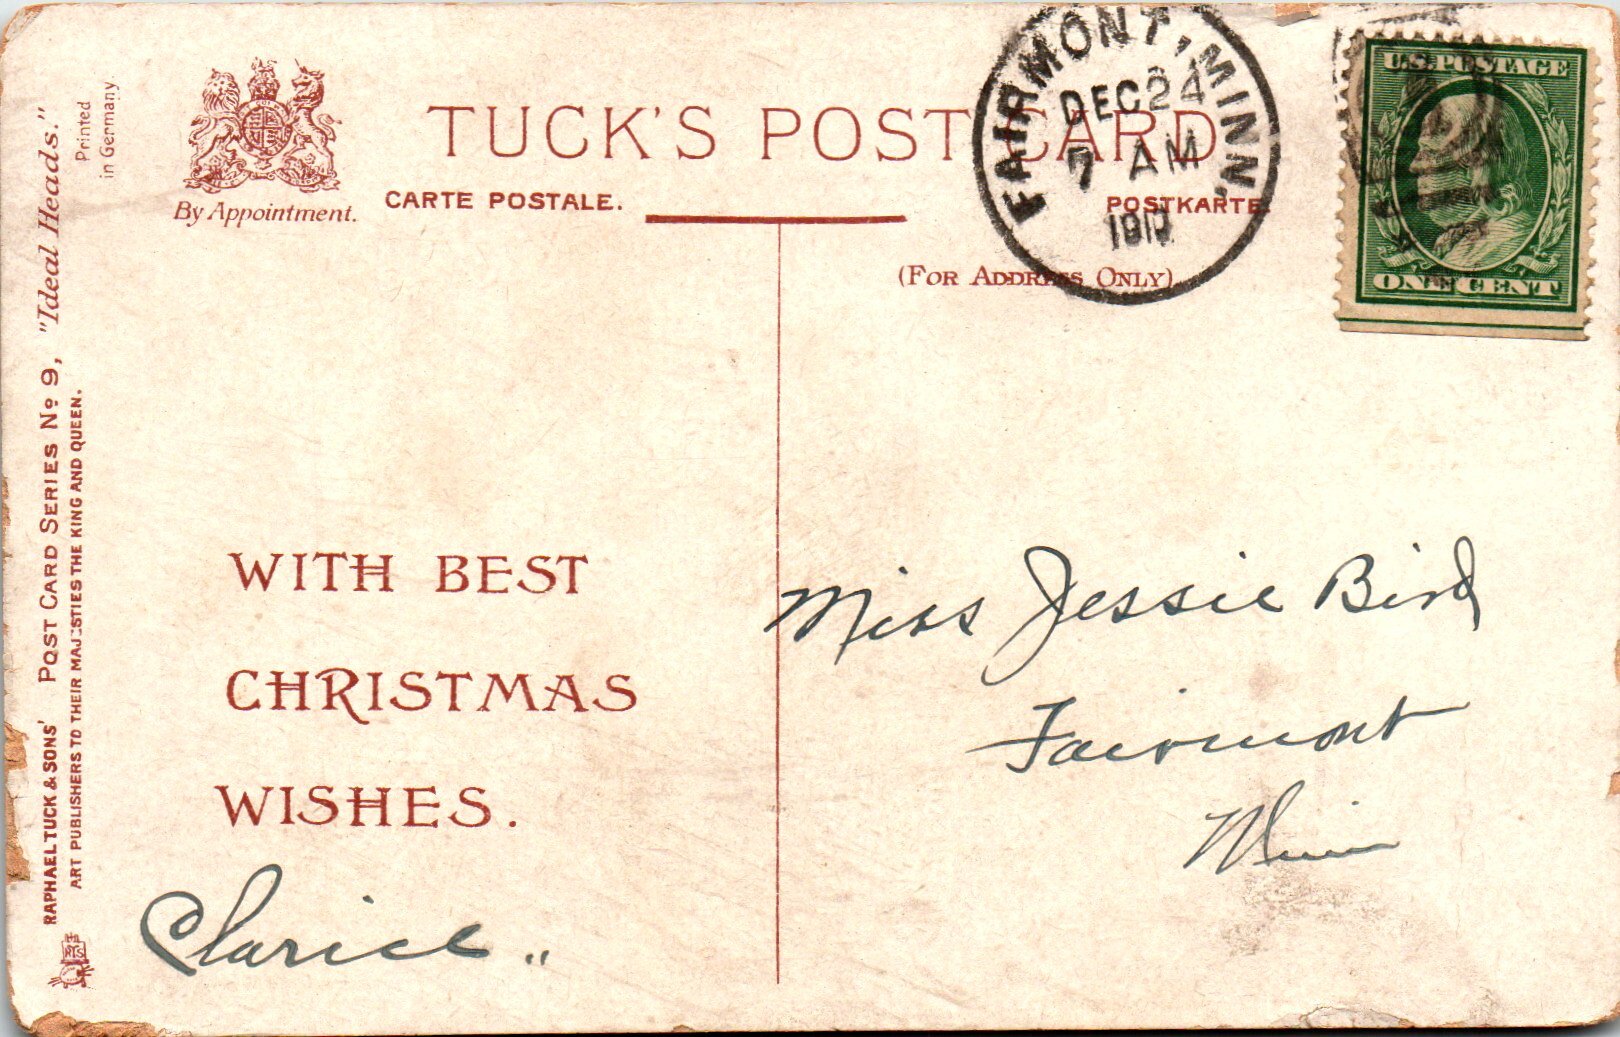 RAPHAEL TUCK & SONS' POST CARD SERIES No 9, "Ideal Heads."
ART PUBLISHERS TO THEIR MAJESTIES THE KING AND QUEEN.
Printed
in Germany
RTS
By Appointment.
TUCK'S POST CARD
CARTE POSTALE.
POSTKARTE.
(FOR ADDRESS ONLY)
FAIRMONT, MINN.
DEC 24
7 AM
U.S. POSTAGE
ONE CENT
WITH BEST
CHRISTMAS
WISHES.
Clarice
Miss Jessie Bird
Fairmont
Minn